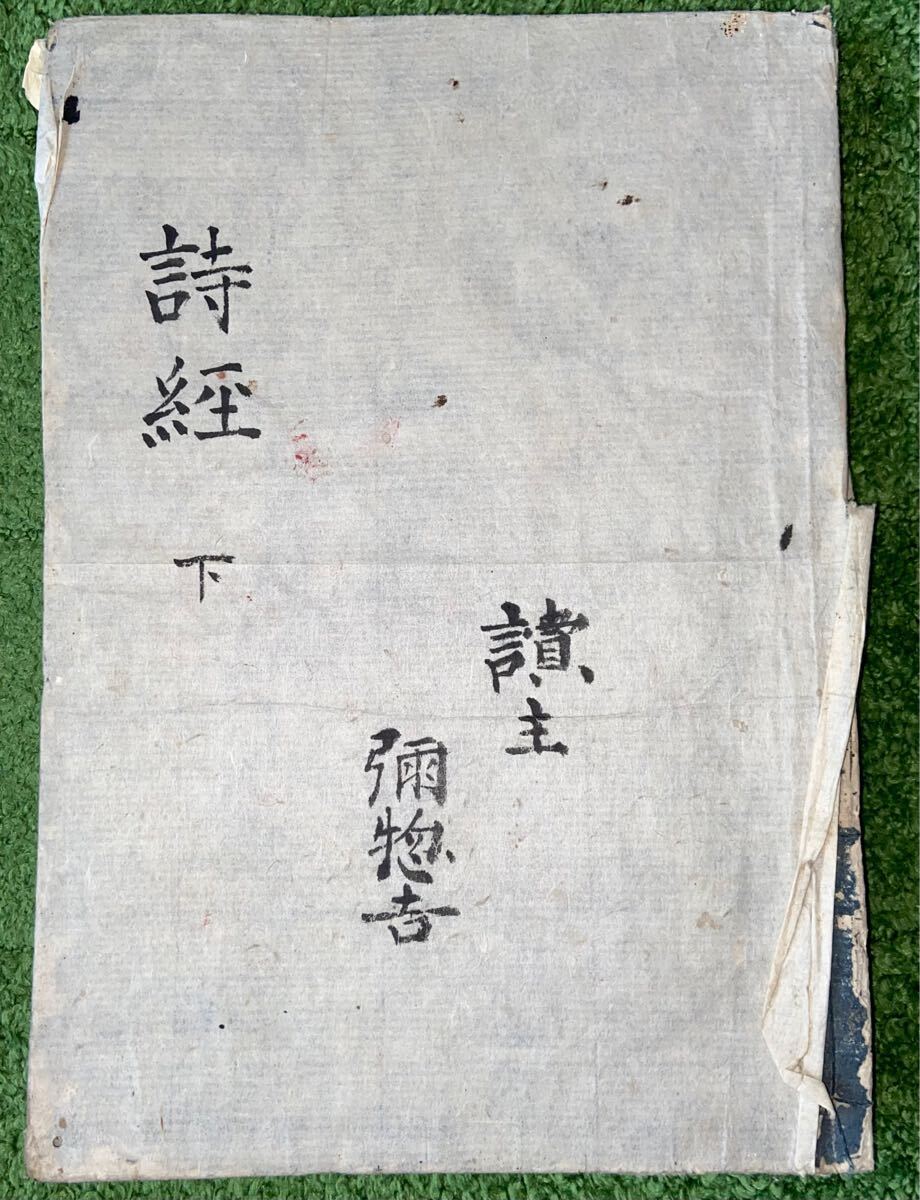 詩經 下
讀主
彌惣吉